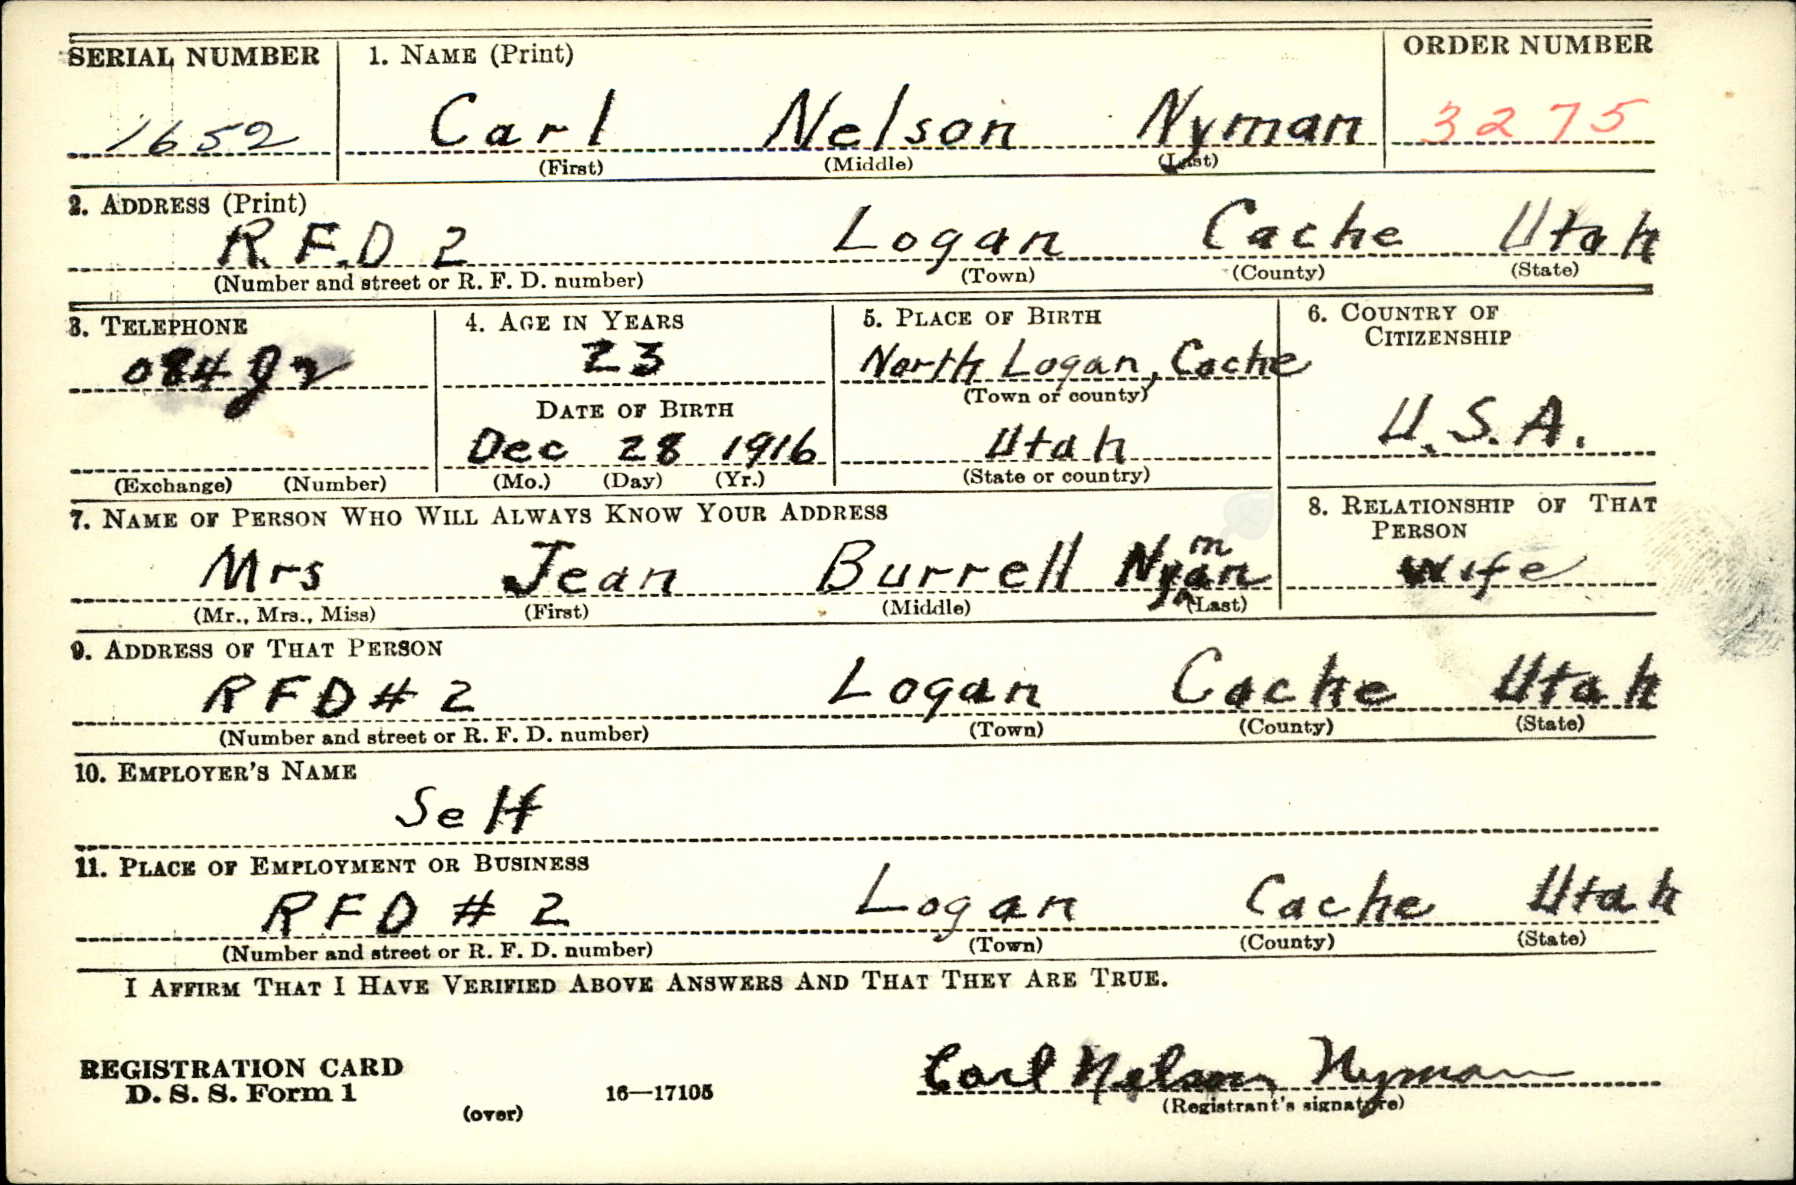 SERIAL NUMBER 1. NAME (Print) ORDER NUMBER
1652 Carl Nelson Nyman 3275
(First) (Middle) (Last)
2. ADDRESS (Print)
R.F.D 2 Logan Cache Utah
(Number and street or R. F. D. number) (Town) (County) (State)
3. TELEPHONE 4. AGE IN YEARS 5. PLACE OF BIRTH 6. COUNTRY OF
CITIZENSHIP
084J2 23 North Logan, Cache
(Town or county)
DATE OF BIRTH
Dec 28 1916 Utah U.S.A.
(Exchange) (Number) (Mo.) (Day) (Yr.) (State or country)
7. NAME OF PERSON WHO WILL ALWAYS KNOW YOUR ADDRESS 8. RELATIONSHIP OF THAT
PERSON
Mrs Jean Burrell Nyman wife
(Mr., Mrs., Miss) (First) (Middle) (Last)
9. ADDRESS OF THAT PERSON
RFD # 2 Logan Cache Utah
(Number and street or R. F. D. number) (Town) (County) (State)
10. EMPLOYER'S NAME
Self
11. PLACE OF EMPLOYMENT OR BUSINESS
RFD # 2 Logan Cache Utah
(Number and street or R. F. D. number) (Town) (County) (State)
I AFFIRM THAT I HAVE VERIFIED ABOVE ANSWERS AND THAT THEY ARE TRUE.
REGISTRATION CARD
D. S. S. Form 1 16—17105 Carl Nelson Nyman
(over) (Registrant's signature)